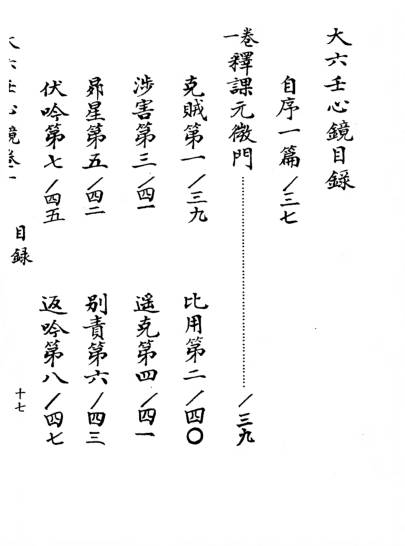 大六壬心鏡目録
自序一篇/三七
卷一 釋課元微門……………………/三九
克賊第一/三九
比用第二/四〇
涉害第三/四一
遥克第四/四一
昴星第五/四二
别責第六/四三
伏吟第七/四五
返吟第八/四七
大六壬心鏡卷一
目録
十七